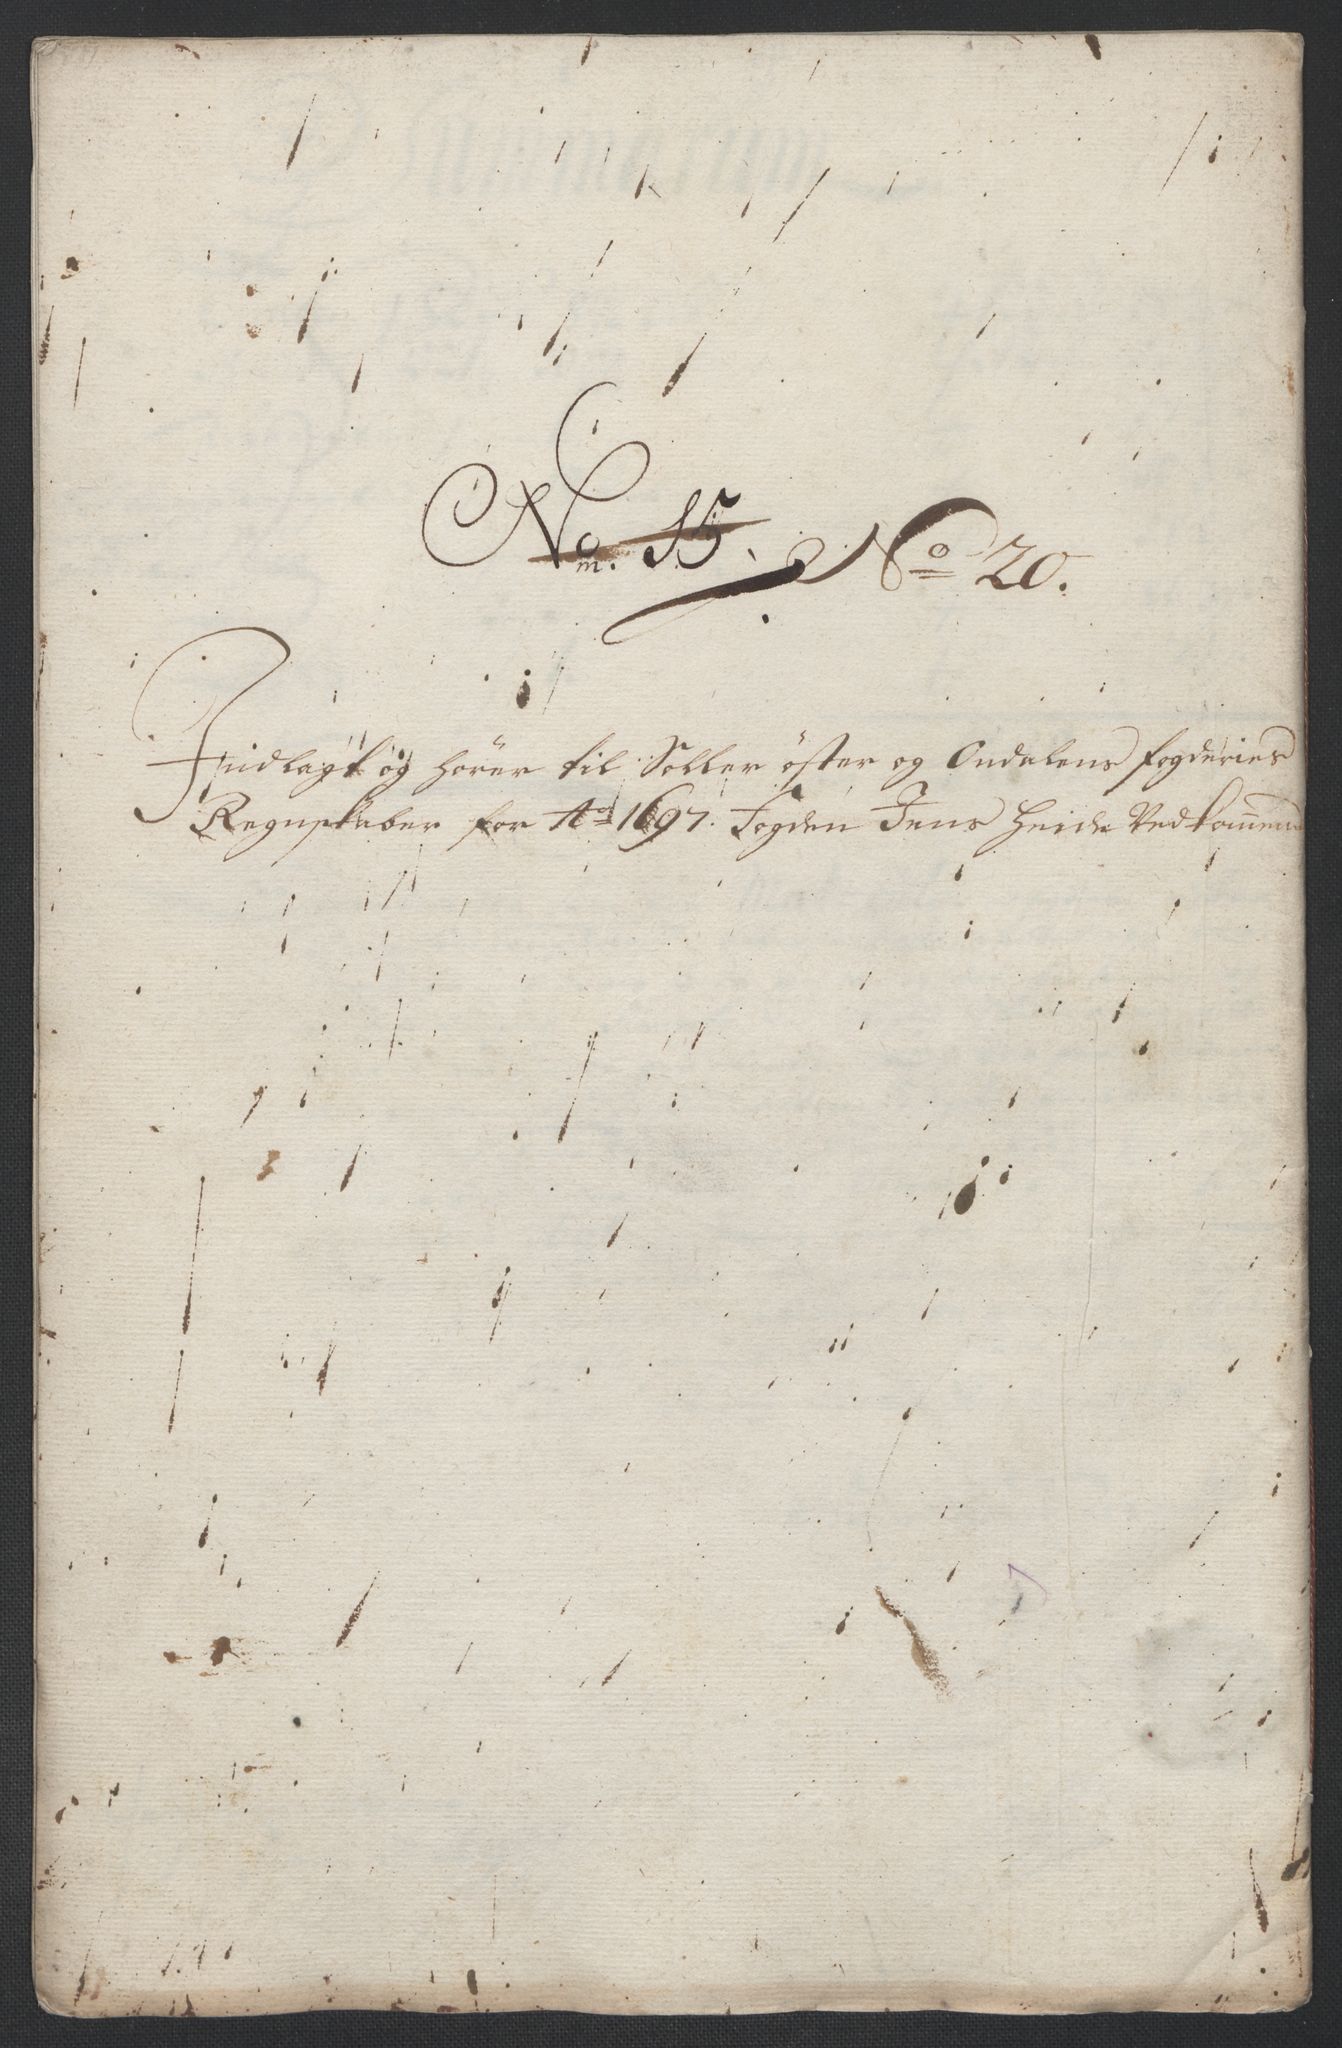 Nom. 15. No 20.
Indlagt og hörer til Soller öster og Oudalens fogderies
Regnskaber for Ao 1697. Fogden Jens Heide Vedkommen